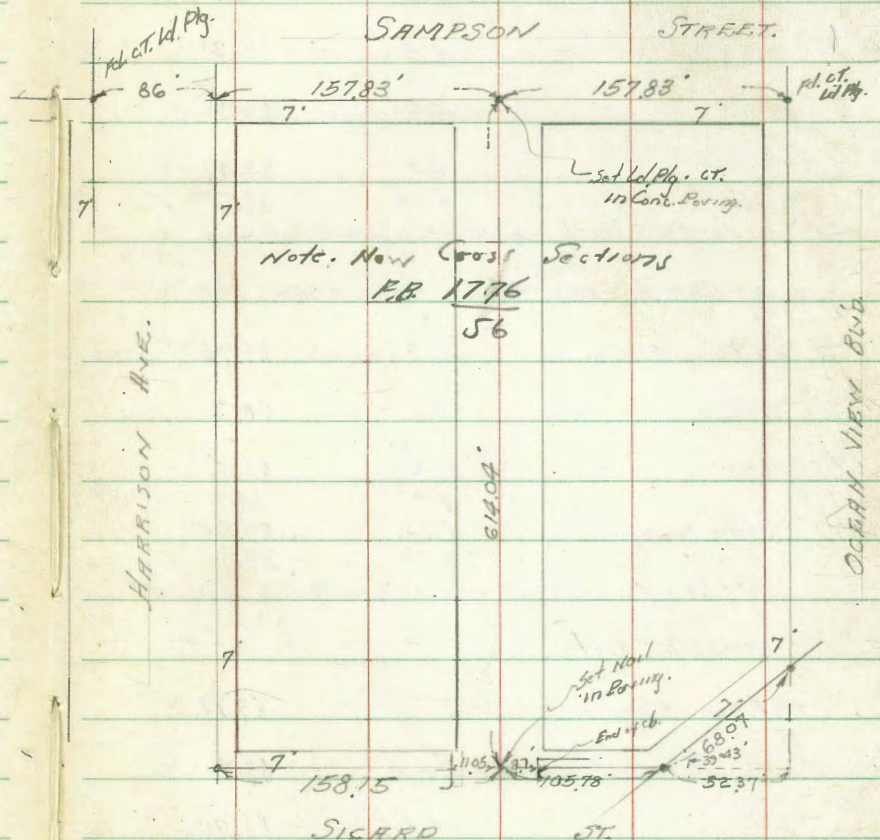 SAMPSON STREET.
Fd. CT. Ld. Plg.
86'
157.83'
157.83'
Fd. CT. Ld Plg.
7'
7'
Set Ld. Plg. CT.
in Conc. Paving.
7'
7'
Note. New Cross Sections
F.B. 1776
56
HARRISON AVE.
614.04'
OCEAN VIEW BLVD.
7'
7'
Set Nail
in Paving.
End of cb.
7'
68.07
7'
158.15
11.05
105.78'
52.37'
SICARD ST.